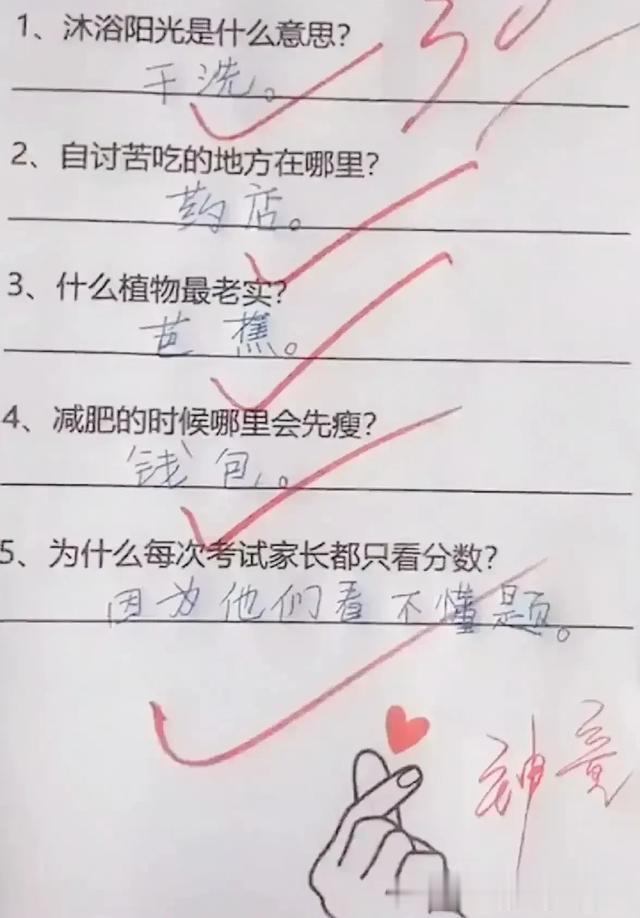 1、沐浴阳光是什么意思?
干洗。
2、自讨苦吃的地方在哪里?
药店。
3、什么植物最老实?
芭蕉。
4、减肥的时候哪里会先瘦?
钱包。
5、为什么每次考试家长都只看分数?
因为他们看不懂题。
神童